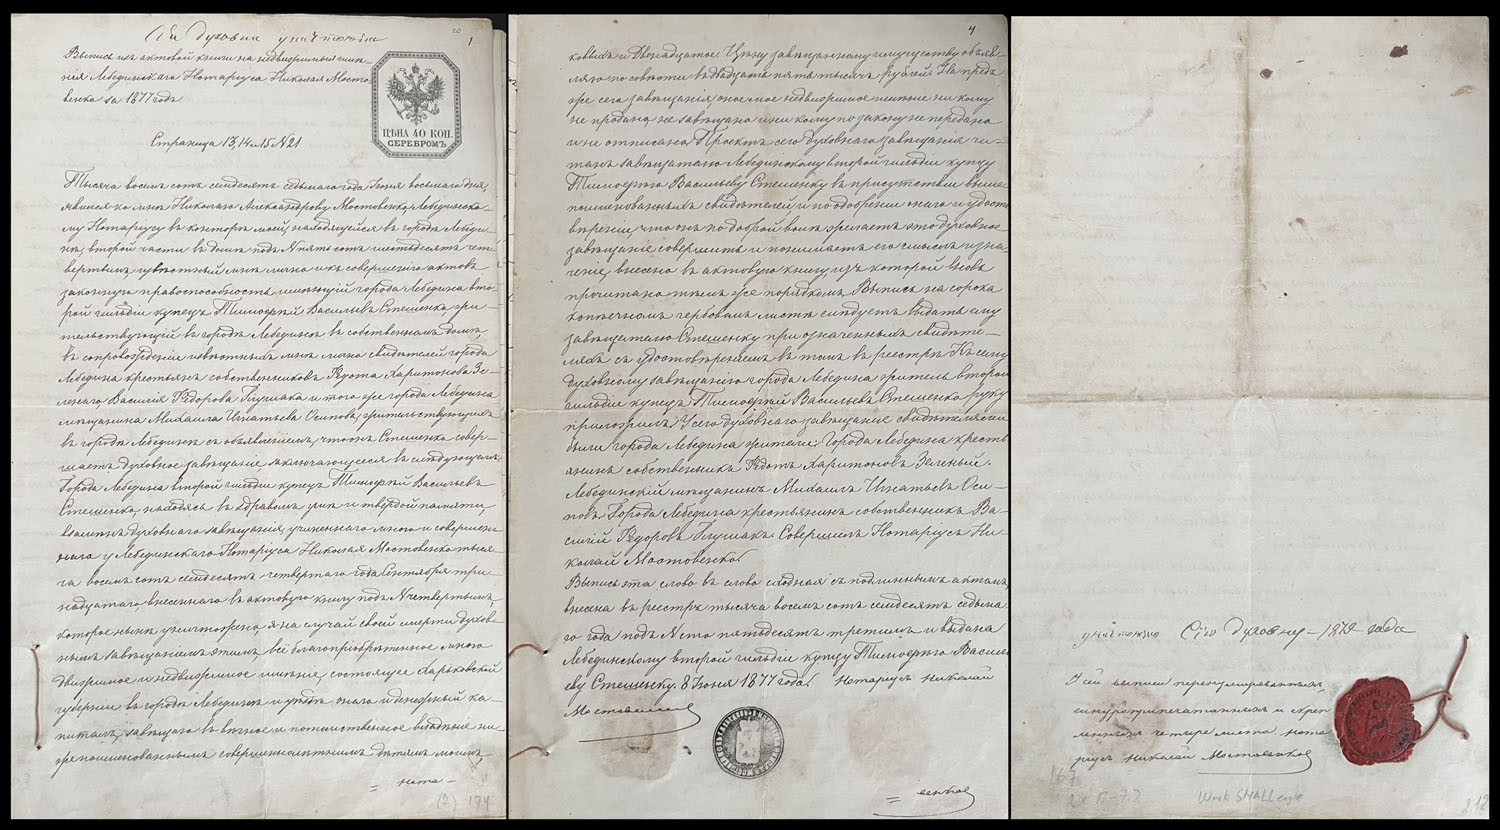 Сiю духовни уничтожаю
20
1
Выпись изъ актовой книги на недвижимыя име-
нія Лебединскаго Нотаріуса Николая Мосто-
венко за 1877 годъ
ЦѢНА 40 КОП.
СЕРЕБРОМЪ
Страница 13, 14 и 15 № 21
Тысяча восемьсотъ семдесятъ седьмаго года Іюня восьмаго дня,
явился ко мнѣ Николаю Александрову Мостовенку, Лебединско-
му Нотаріусу въ контору мою находящуюся въ городѣ Лебеди-
нѣ, второй части въ домѣ подъ № пятьсотъ шестьдесятъ чет-
вертымъ извѣстный мнѣ лично и къ совершенію актовъ
законную правоспособность имѣющій города Лебедина вто-
рой гильдіи купецъ Тимофей Васильевъ Стешенко жи-
тельствующій въ городѣ Лебединѣ въ собственномъ домѣ,
въ сопровожденіи извѣстныхъ мнѣ лично свидѣтелей города
Лебедина крестьянъ собственниковъ Федота Харитонова Зе-
ленаго, Василія Федорова Глушака и того же города Лебедина
мѣщанина Михаила Игнатьева Осипова, жительствующихъ
въ городѣ Лебединѣ съ объявленіемъ, что онъ Стешенко совер-
шаетъ духовное завѣщаніе заключающееся въ слѣдующемъ:
Города Лебедина второй гильдіи купецъ Тимофей Васильевъ
Стешенко, находясь въ здравомъ умѣ и твердой памяти,
взамѣнъ духовнаго завѣщанія, учиненнаго мною и совершен-
наго у Лебединскаго Нотаріуса Николая Мостовенко тыся-
ча восемьсотъ семдесятъ четвертаго года Сентября три-
надцатаго внесеннаго въ актовую книгу подъ № четвертымъ,
которое нынѣ уничтожено, я на случай своей смерти духов-
нымъ завѣщаніемъ этимъ, всё благопріобрѣтенное мною
движимое и недвижимое имѣніе состоящее Харьковской
губерніи въ городѣ Лебединѣ и уѣздѣ онаго и денежный ка-
питалъ, завѣщаю въ вѣчное и потомственное владѣніе ни-
жепоименованнымъ совершеннолѣтнимъ дѣтямъ моимъ,
= нота-
(2) 174
4
ковымъ и Двенадцатое. Цѣну завѣщанному имуществу объяв-
ляю по совѣсти въ двадцать пять тысячъ рублей. На предъ
же сего завѣщанія, оное мое недвижимое имѣніе ни кому
не продано, не завѣщано и ни кому по закону не передано
и не отписано. Проектъ сего духовнаго завѣщанія чи-
танъ завѣщателю Лебединскому второй гильдіи купцу
Тимофею Васильеву Стешенку въ присутствіи выше
поименованныхъ свидѣтелей и по одобреніи онаго и удосто
вѣреніи, что онъ по доброй волѣ желаетъ это духовное
завѣщаніе совершить и понимаетъ его смыслъ и зна-
ченіе, внесено въ актовую книгу изъ которой вновь
прочитано тѣмъ же порядкомъ. Выпись на сорока
копѣечномъ гербовомъ листѣ слѣдуетъ выдать ему
завѣщателю Стешенку при означенныхъ свидѣте-
ляхъ съ удостовѣреніемъ въ томъ въ реестрѣ. Къ сему
духовному завѣщанію города Лебедина житель второй
гильдіи купецъ Тимофей Васильевъ Стешенко руку
приложилъ. У сего духовнаго завѣщанія свидѣтелями
были города Лебедина жители: Города Лебедина кресть
янинъ собственникъ Федотъ Харитоновъ Зеленый.
Лебединскій мѣщанинъ Михаилъ Игнатьевъ Оси-
повъ. Города Лебедина крестьянинъ собственникъ Ва-
силій Федоровъ Глушакъ. Совершилъ Нотаріусъ Ни-
колай Мостовенко.
Выпись эта слово въ слово сходная съ подлиннымъ актомъ,
внесена въ реестръ тысяча восемьсотъ семдесятъ седьма-
го года подъ № сто пятьдесятъ третьимъ и выдана
Лебединскому второй гильдіи купцу Тимофею Василь
еву Стешенку. 8 Іюня 1877 года. Нотаріусъ Николай
Мостовенко
= венко
уничтожаю Сію духовну – 1879 года
У сей выписи перенумерованныхъ,
шнуромъ печатанныхъ и скреп
ленныхъ четыре листа, нота-
ріусъ Николай Мостовенко
167
2 x 17-7.2
Work SMALL eagle
2.12